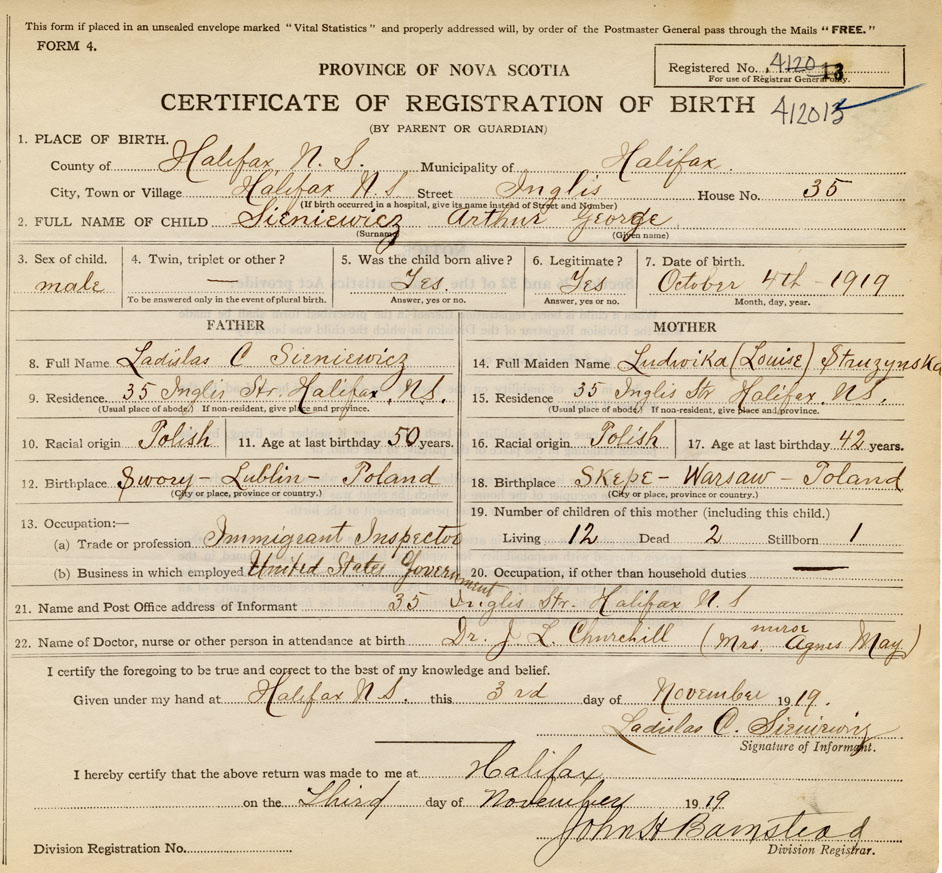 This form if placed in an unsealed envelope marked "Vital Statistics" and properly addressed will, by order of the Postmaster General pass through the Mails "FREE."
FORM 4.
Registered No. 4120 13
For use of Registrar General only.
PROVINCE OF NOVA SCOTIA
CERTIFICATE OF REGISTRATION OF BIRTH 412013
(BY PARENT OR GUARDIAN)
1. PLACE OF BIRTH.
County of Halifax N. S. Municipality of Halifax.
City, Town or Village Halifax N S Street Inglis House No. 35
(If birth occurred in a hospital, give its name instead of Street and Number)
2. FULL NAME OF CHILD Sieniewicz Arthur George
(Surname) (Given name)
3. Sex of child. 4. Twin, triplet or other? 5. Was the child born alive? 6. Legitimate? 7. Date of birth.
male — Yes. Yes October 4th - 1919
To be answered only in the event of plural birth. Answer, yes or no. Answer, yes or no. Month, day, year.
FATHER MOTHER
8. Full Name Ladislas C Sieniewicz 14. Full Maiden Name Ludwika (Louise) Struzynska
9. Residence 35 Inglis Str. Halifax. N.S. 15. Residence 35 Inglis Str Halifax. N.S.
(Usual place of abode.) If non-resident, give place and province. (Usual place of abode.) If non-resident, give place and province.
10. Racial origin Polish 11. Age at last birthday 50 years. 16. Racial origin Polish 17. Age at last birthday 42 years.
12. Birthplace - Lublin - Poland 18. Birthplace Skepe - Warsaw - Poland
(City or place, province or country.) (City or place, province or country.)
13. Occupation:— 19. Number of children of this mother (including this child.)
(a) Trade or profession Immigrant Inspector Living 12 Dead 2 Stillborn 1
(b) Business in which employed United States Government 20. Occupation, if other than household duties —
21. Name and Post Office address of Informant 35 Inglis Str. Halifax N. S
22. Name of Doctor, nurse or other person in attendance at birth Dr. J. L. Churchill (nurse Mrs. Agnes May)
I certify the foregoing to be true and correct to the best of my knowledge and belief.
Given under my hand at Halifax N S. this 3rd day of November 1919.
Ladislas C. Sieniewicz
Signature of Informant.
I hereby certify that the above return was made to me at Halifax
on the Third day of November 1919
John H Barnstead
Division Registration No. Division Registrar.